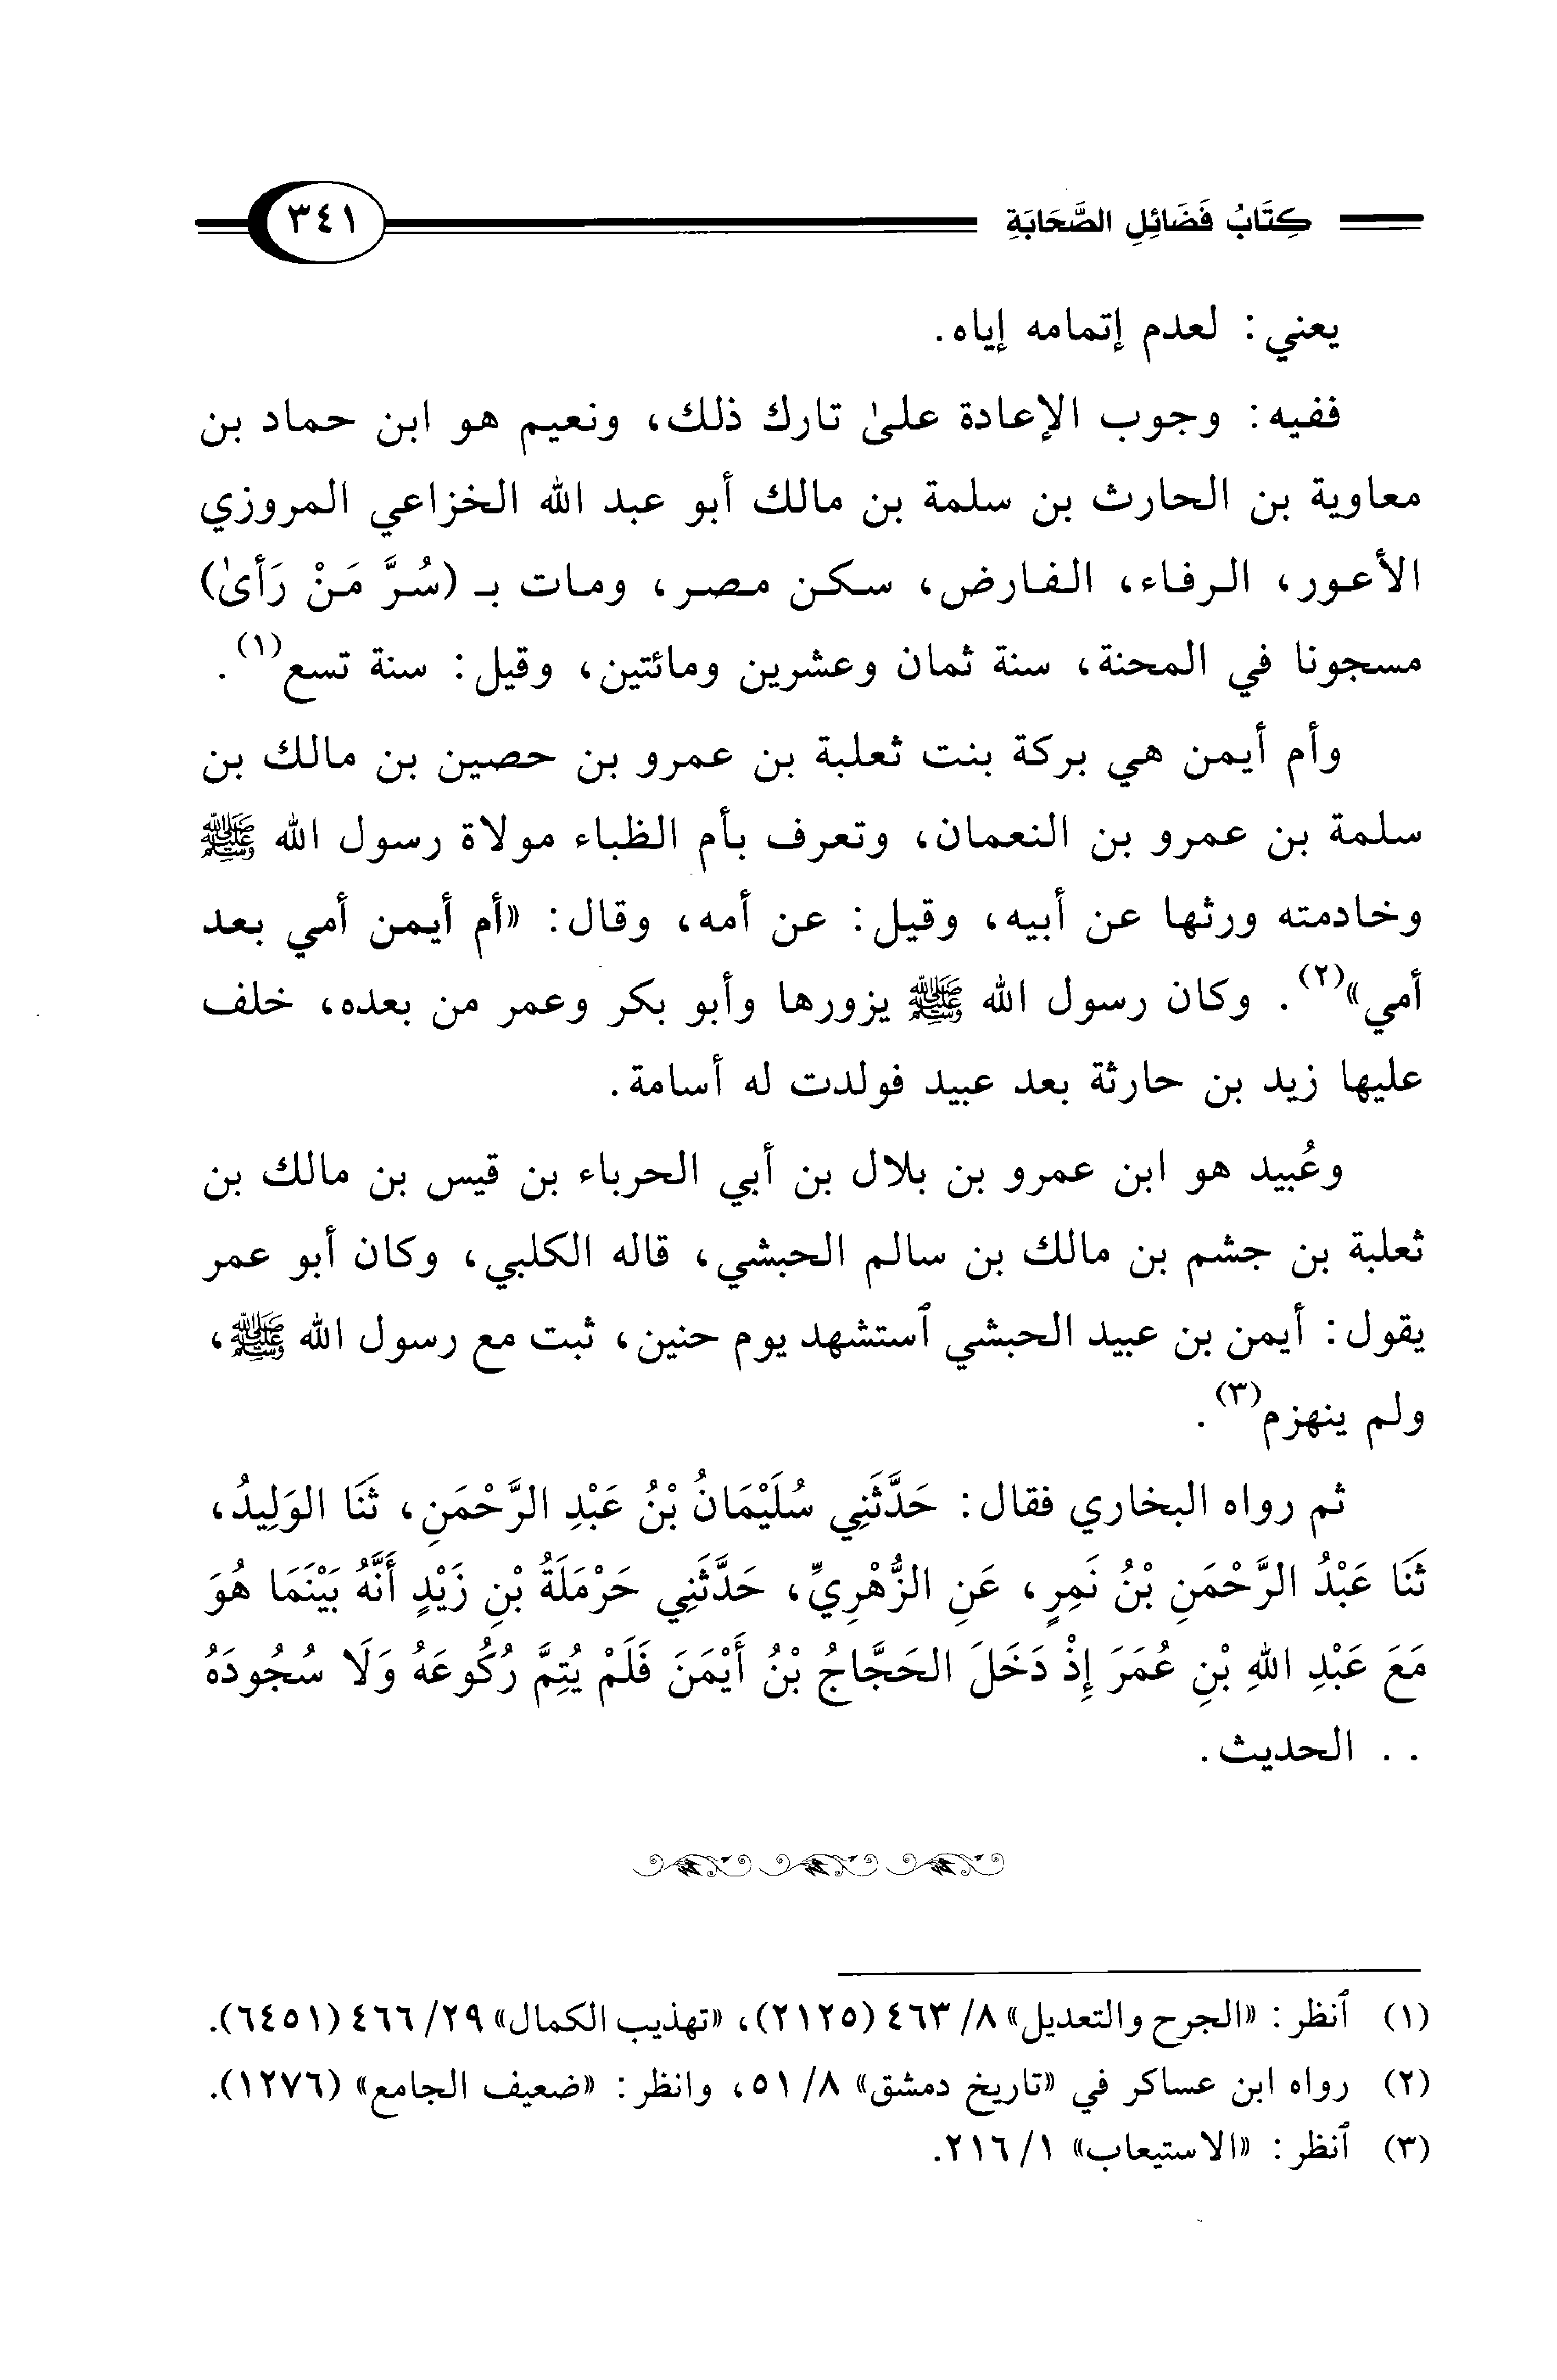 كِتَابُ فَضَائِلِ الصَّحَابَةِ ٣٤١
يعني: لعدم إتمامه إياه.
ففيه: وجوب الإعادة علىٰ تارك ذلك، ونعيم هو ابن حماد بن
معاوية بن الحارث بن سلمة بن مالك أبو عبد الله الخزاعي المروزي
الأعور، الرفاء، الفارض، سكن مصر، ومات بـ (سُرَّ مَنْ رَأىٰ)
مسجونا في المحنة، سنة ثمان وعشرين ومائتين، وقيل: سنة تسع(١).
وأم أيمن هي بركة بنت ثعلبة بن عمرو بن حصين بن مالك بن
سلمة بن عمرو بن النعمان، وتعرف بأم الظباء مولاة رسول الله ﷺ
وخادمته ورثها عن أبيه، وقيل: عن أمه، وقال: «أم أيمن أمي بعد
أمي»(٢). وكان رسول الله ﷺ يزورها وأبو بكر وعمر من بعده، خلف
عليها زيد بن حارثة بعد عبيد فولدت له أسامة.
وعُبيد هو ابن عمرو بن بلال بن أبي الحرباء بن قيس بن مالك بن
ثعلبة بن جشم بن مالك بن سالم الحبشي، قاله الكلبي، وكان أبو عمر
يقول: أيمن بن عبيد الحبشي ٱستشهد يوم حنين، ثبت مع رسول الله ﷺ،
ولم ينهزم(٣).
ثم رواه البخاري فقال: حَدَّثَنِي سُلَيْمَانُ بْنُ عَبْدِ الرَّحْمَنِ، ثَنَا الوَلِيدُ،
ثَنَا عَبْدُ الرَّحْمَنِ بْنُ نَمِرٍ، عَنِ الزُّهْرِيِّ، حَدَّثَنِي حَرْمَلَةُ بْنِ زَيْدٍ أَنَّهُ بَيْنَمَا هُوَ
مَعَ عَبْدِ اللهِ بْنِ عُمَرَ إِذْ دَخَلَ الحَجَّاجُ بْنُ أَيْمَنَ فَلَمْ يُتِمَّ رُكُوعَهُ وَلَا سُجُودَهُ
.. الحديث.
(١) ٱنظر: «الجرح والتعديل» ٨/ ٤٦٣ (٢١٢٥)، «تهذيب الكمال» ٢٩/ ٤٦٦ (٦٤٥١).
(٢) رواه ابن عساكر في «تاريخ دمشق» ٨/ ٥١، وانظر: «ضعيف الجامع» (١٢٧٦).
(٣) ٱنظر: «الاستيعاب» ١/ ٢١٦.